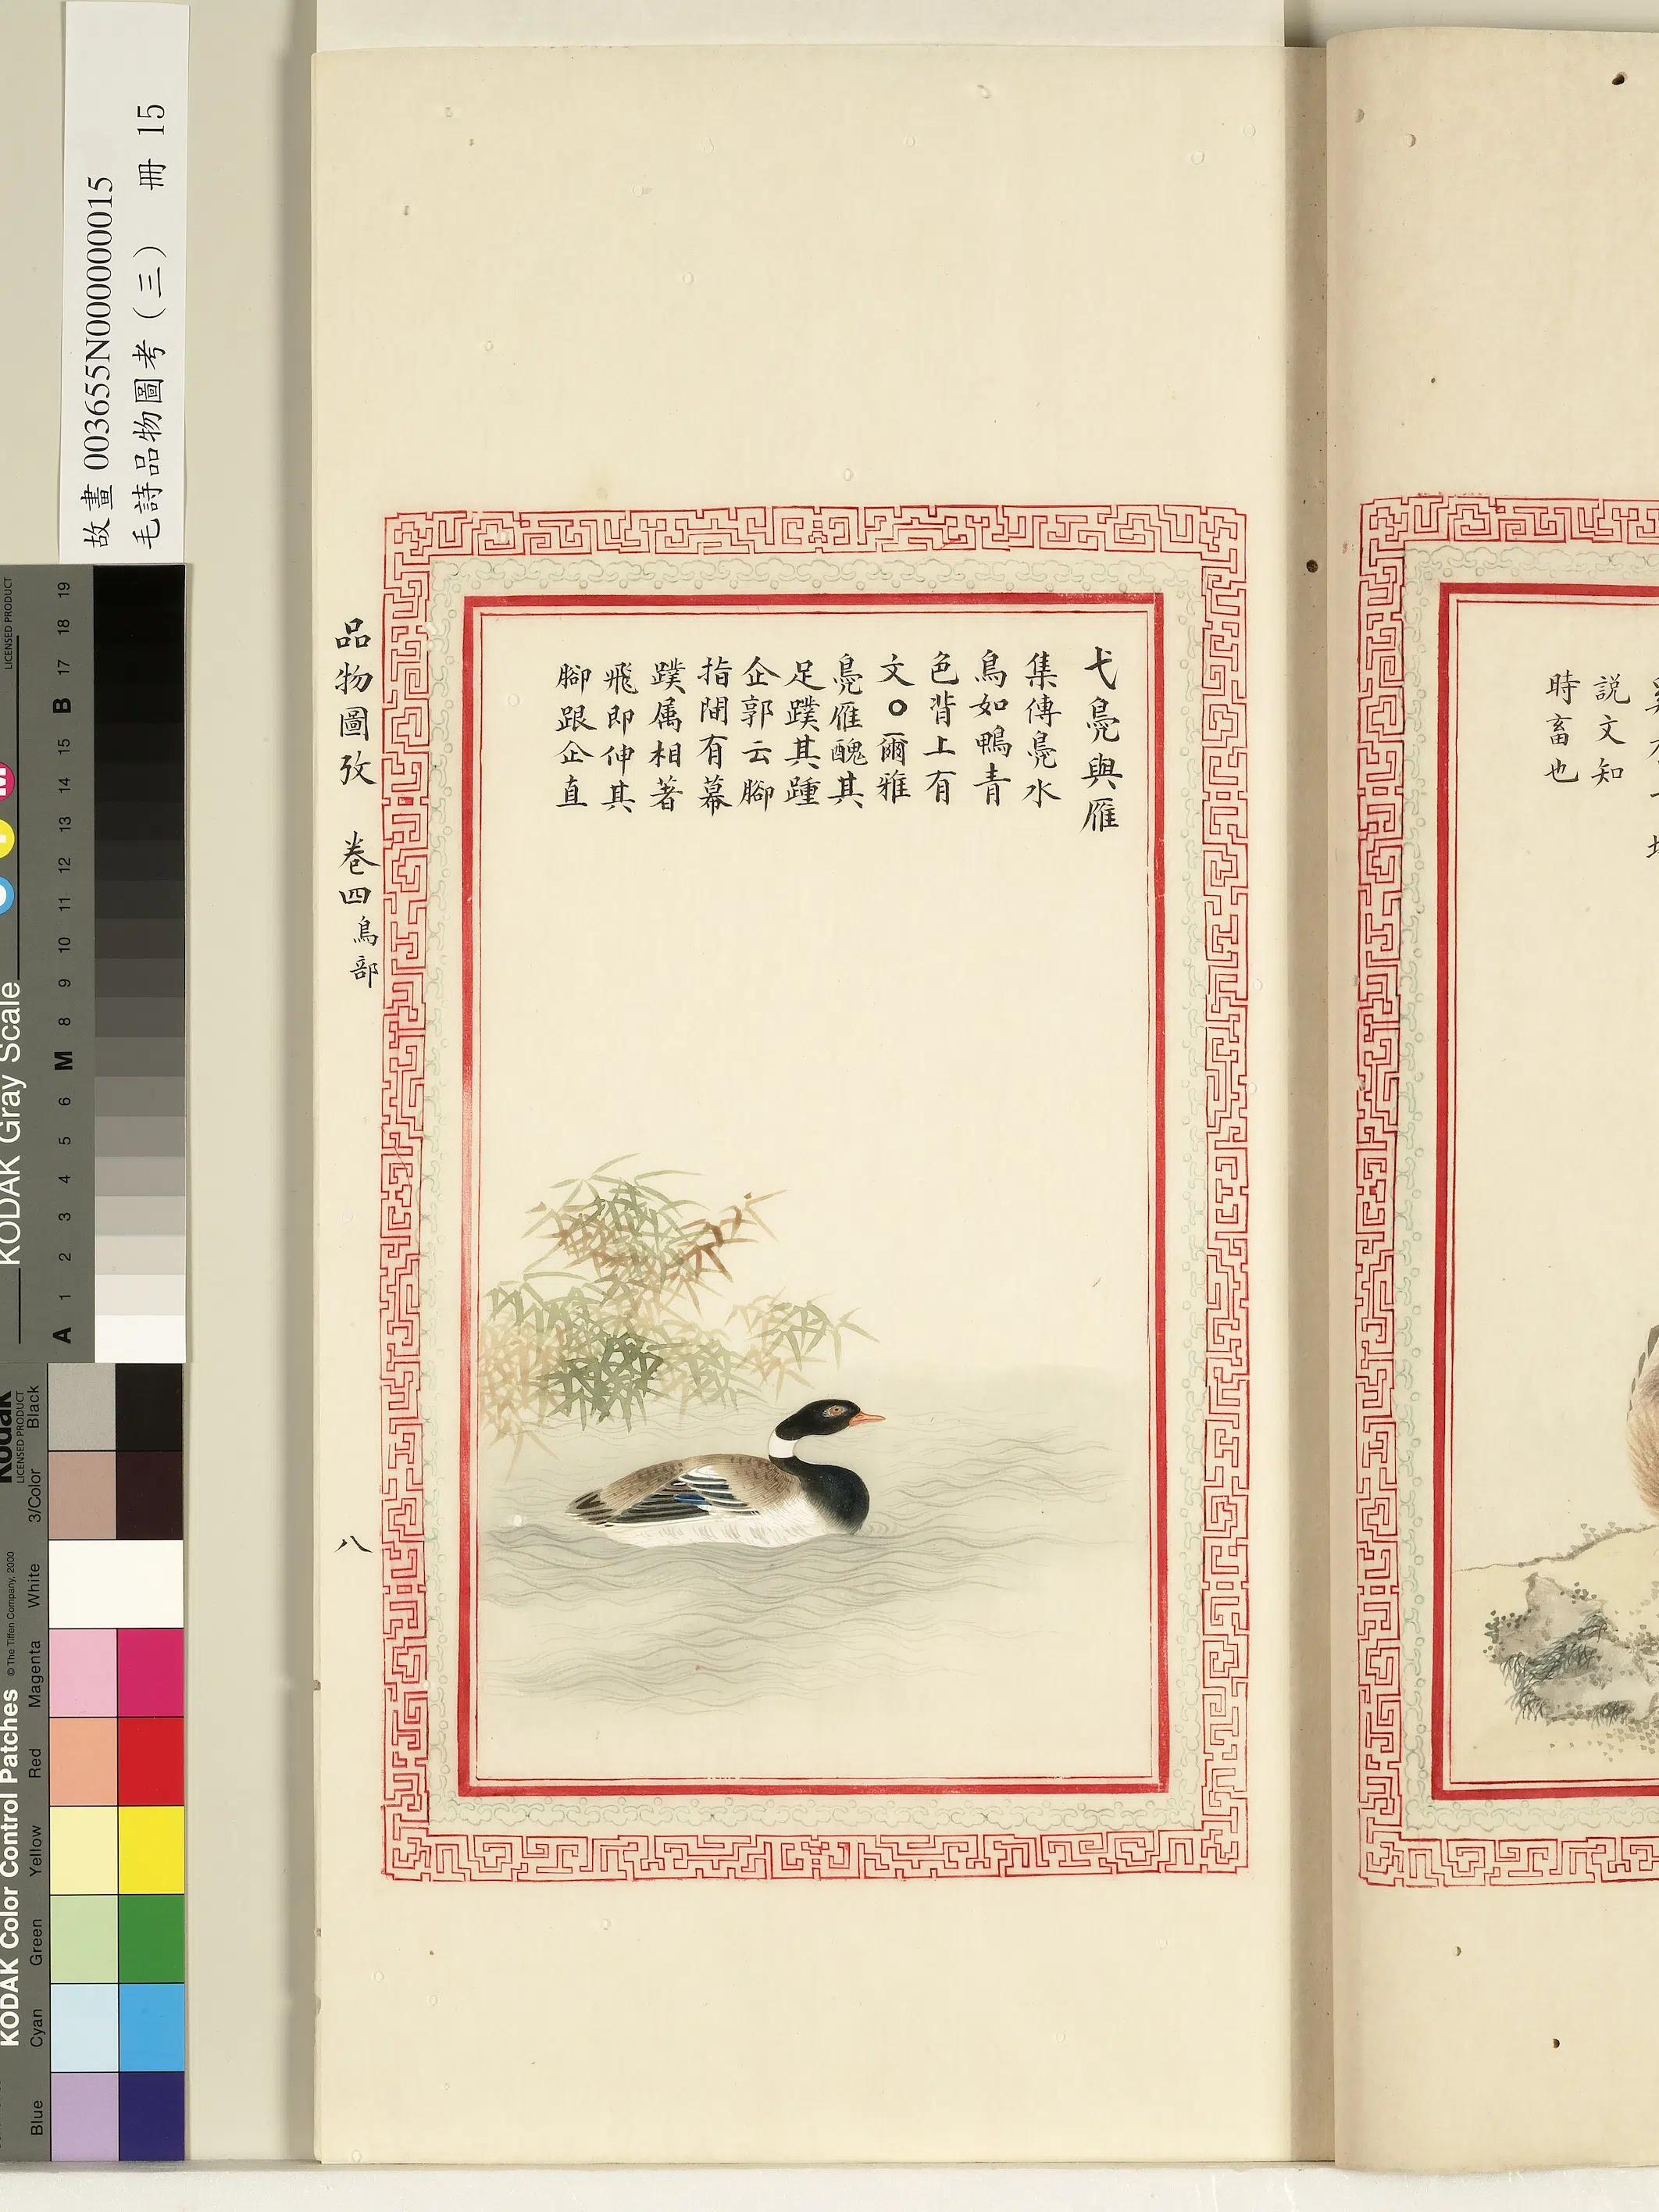 故畫 00365500N00000015
毛詩品物圖考（三） 冊 15
弋鳧與雁
集傳鳧水
鳥如鴨青
色背上有
文○爾雅
鳧雁醜其
足蹼其踵
企郭云腳
指間有幕
蹼属相著
飛即伸其
腳跟企直
品物圖攷 卷四鳥部
八
説文知
時畜也
KODAK Gray Scale
LICENSED PRODUCT
A 1 2 3 4 5 6 M 8 9 10 11 12 13 14 15 B 17 18 19
KODAK Color Control Patches
© The Tiffen Company, 2000
Kodak
LICENSED PRODUCT
Blue Cyan Green Yellow Red Magenta White 3/Color Black